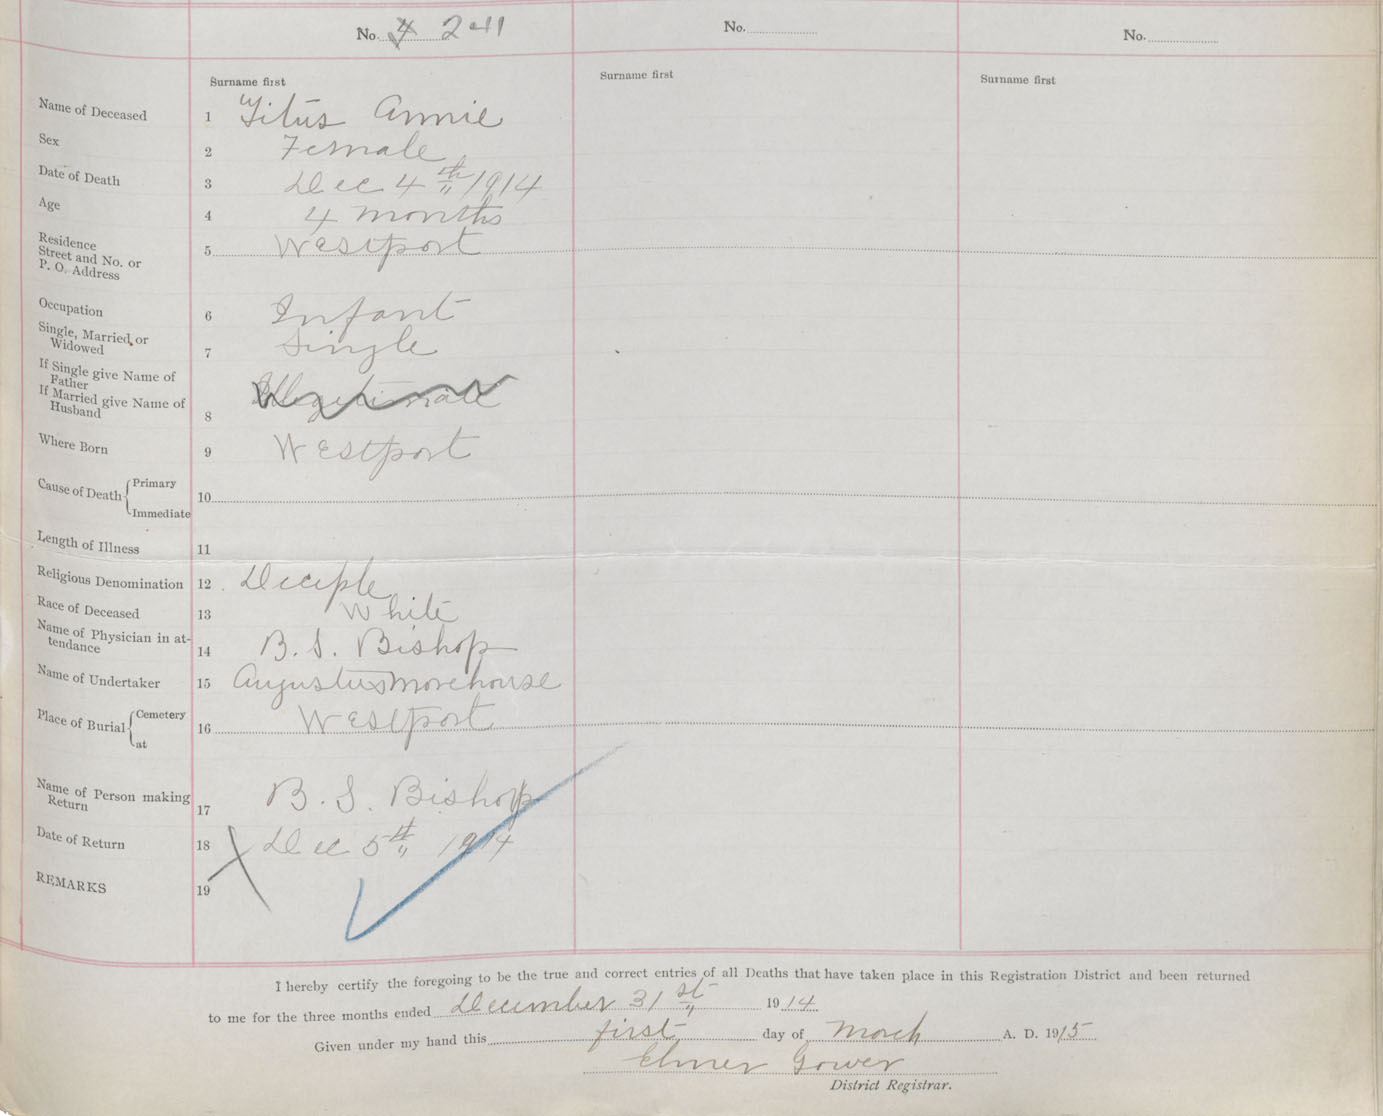 No. 4 241
No.
No.
Surname first
Surname first
Surname first
Name of Deceased 1 Titus Annie
Sex 2 Female
Date of Death 3 Dec 4th 1914
Age 4 4 months
Residence
Street and No. or
P. O. Address
5 Westport
Occupation 6 Infant
Single, Married, or
Widowed
7 Single
If Single give Name of
Father
If Married give Name of
Husband
8 Illegitimate
Where Born 9 Westport
Cause of Death { Primary
Immediate
10
Length of Illness 11
Religious Denomination 12 Deciple
Race of Deceased 13 White
Name of Physician in at-
tendance
14 B. S. Bishop
Name of Undertaker 15 Augustus Morehouse
Place of Burial { Cemetery
at
16 Westport
Name of Person making
Return
17 B. S. Bishop
Date of Return 18 Dec 5th 1914
REMARKS 19
I hereby certify the foregoing to be the true and correct entries of all Deaths that have taken place in this Registration District and been returned
to me for the three months ended December 31st 1914
Given under my hand this first day of March A. D. 1915
Elmer Gower
District Registrar.